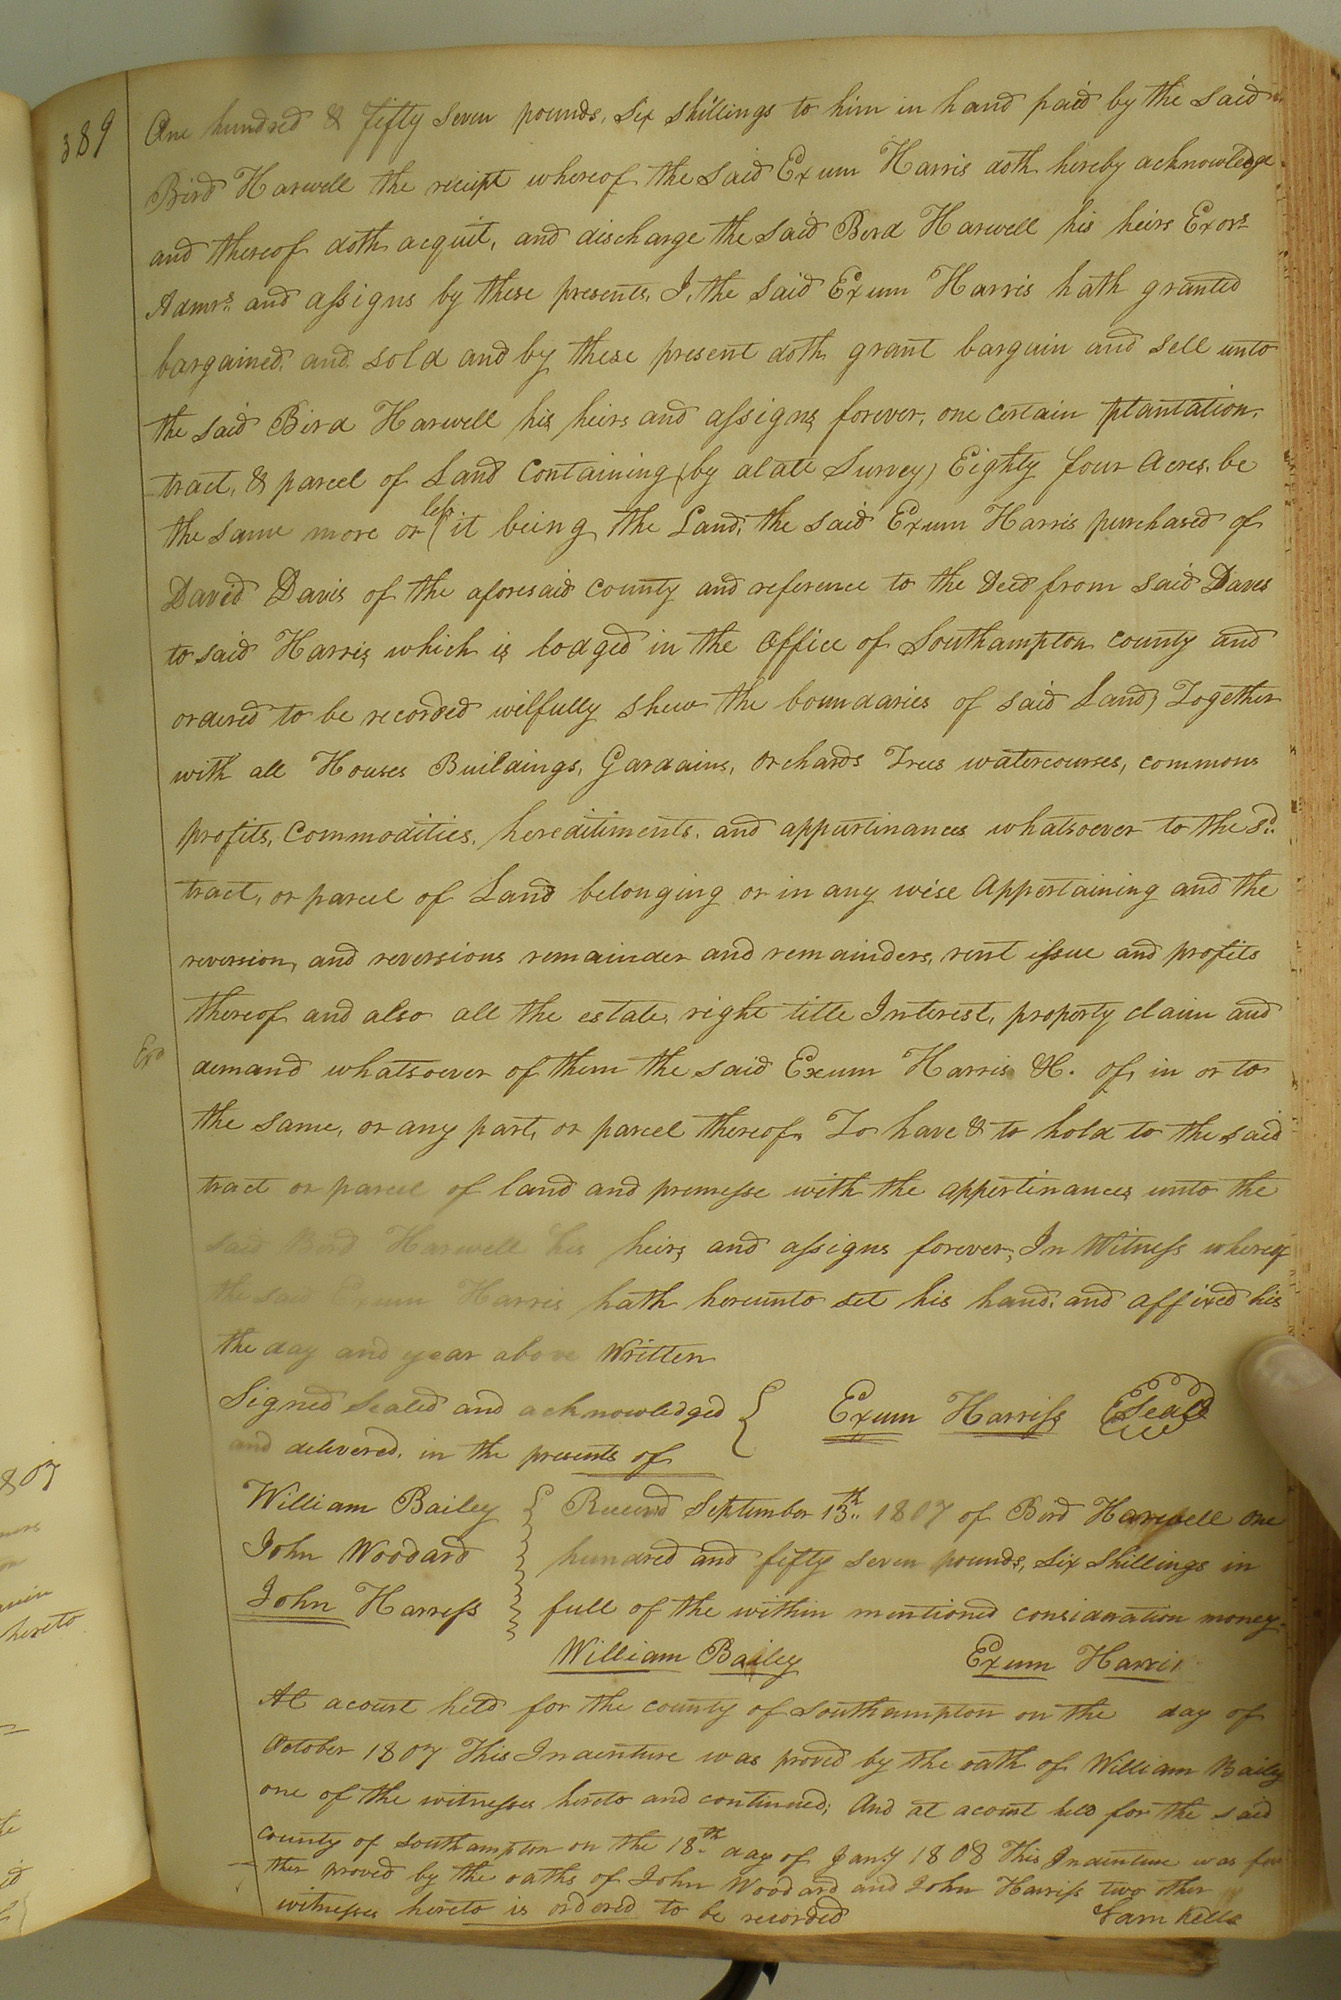 389
One hundred & fifty Seven pounds, Six shillings to him in hand paid by the said
Bird Harwell the receipt whereof the said Exum Harris doth hereby acknowledge
and thereof doth acquit, and discharge the said Bird Harwell his heirs Exors
Admrs and assigns by these presents, I, the said Exum Harris hath granted
bargained, and sold and by these present doth grant bargain and sell unto
the said Bird Harwell his heirs and assigns forever, one certain plantation,
tract, & parcel of Land Containing (by a late Survey) Eighty four Acres, be
the same more or less it being the Land, the said Exum Harris purchased of
David Davis of the aforesaid county and reference to the Deed from said Daves
to said Harris which is lodged in the office of Southampton county and
ordered to be recorded wilfully shew the boundaries of said Land) Together
with all Houses Buildings, Gardains, orchards Trees watercourses, commons
profits, Commodities, hereditiments, and appurtinances whatsoever to the sd.
tract, or parcel of Land belonging or in any wise Appertaining and the
reversion, and reversions remainder and remainders, rent issue and profits
thereof and also all the estate, right title Interest, property claim and
Exa
demand whatsoever of them the said Exum Harris &. of, in or to
the same, or any part, or parcel thereof. To have & to hold to the said
tract or parcel of land and premesse with the appertinances unto the
said Bird Harwell his heirs and assigns forever, In Witness whereof
the said Exum Harris hath hereunto set his hand, and affixed his
the day and year above Written
Signed Sealed and acknowledged
and delivered, in the presents of
Exum Harriss Seal
William Bailey
John Woodard
John Harress
Received September 13th. 1807 of Bird Harwell one
hundred and fifty seven pounds, six shillings in
full of the within mentioned consideration money.
William Bailey Exum Harris
At a court held for the county of Southampton on the day of
October 1807 This Indenture was proved by the oath of William Bailey
one of the witnesses hereto and continued; And at a court held for the said
county of Southampton on the 18th. day of Jany 1808 This Indenture was fur
ther proved by the oaths of John Woodard and John Harriss two other
witnesses hereto is ordered to be recorded
Sam Kello
1807
hereto